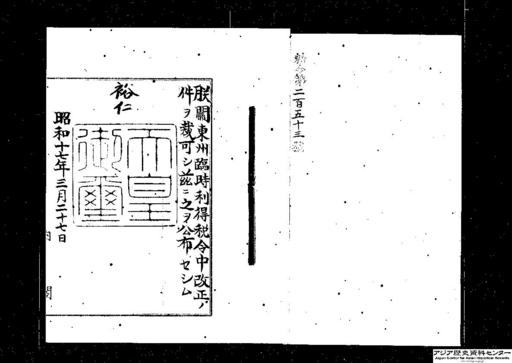 勅令第二百五十三號
朕關東州臨時利得税令中改正ノ
件ヲ裁可シ茲ニ之ヲ公布セシム
裕仁
天皇
御璽
昭和十七年三月二十七日
内閣
アジア歴史資料センター
Japan Center for Asian Historical Records